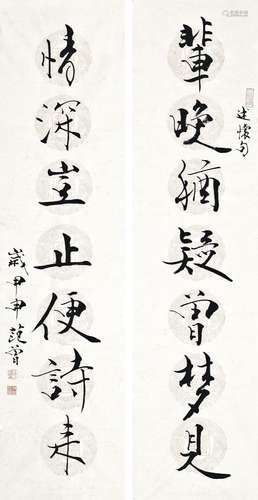 輩晚猶疑曾梦見
述懷句
情深豈止便詩来
歲甲申 范曾